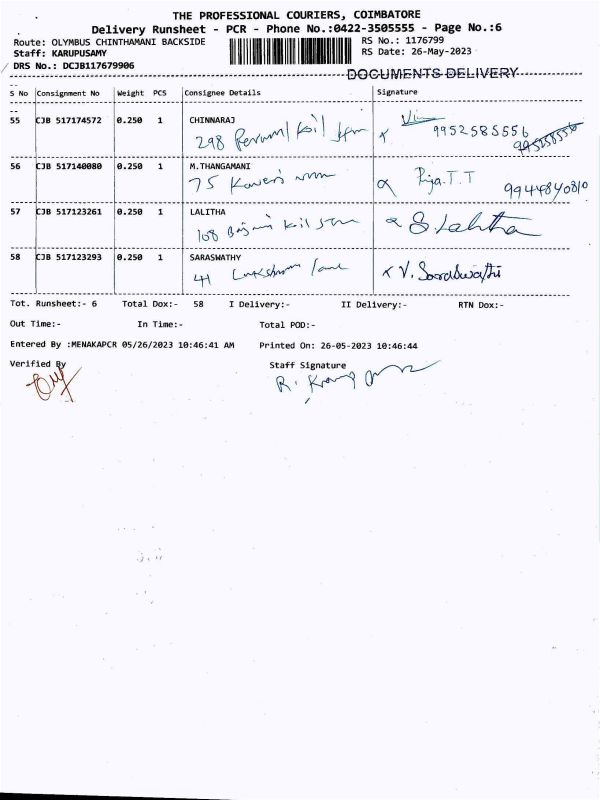 THE PROFESSIONAL COURIERS, COIMBATORE
Delivery Runsheet - PCR - Phone No.:0422-3505555 - Page No.:6
Route: OLYMBUS CHINTHAMANI BACKSIDE
RS No.: 1176799
Staff: KARUPUSAMY
RS Date: 26-May-2023
DRS No.: DCJB117679906
DOCUMENTS DELIVERY
S No Consignment No Weight PCS Consignee Details Signature
55 CJB 517174572 0.250 1 CHINNARAJ
298 9952585556
9952585556
56 CJB 517140080 0.250 1 M.THANGAMANI
75 T.T 9944840810
57 CJB 517123261 0.250 1 LALITHA
108 S. Lalitha
58 CJB 517123293 0.250 1 SARASWATHY
41 V. Saraswathi
Tot. Runsheet:- 6 Total Dox:- 58 I Delivery:- II Delivery:- RTN Dox:-
Out Time:- In Time:- Total POD:-
Entered By :MENAKAPCR 05/26/2023 10:46:41 AM Printed On: 26-05-2023 10:46:44
Verified By Staff Signature
R.